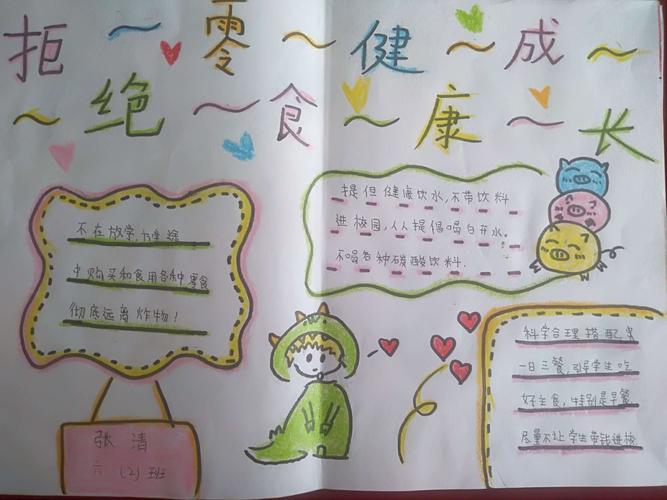 拒零健成
绝食康长
不在放学
中购买和食用各种零食
彻底远离炸物！
提但健康饮水,不带饮料
进校园,人人提倡喝白开水。
不喝各种碳酸饮料.
科学合理搭配桌
一日三餐,引导学生吃
好主食,特别是早餐
尽量不让学生带钱进校
张清
六(2)班